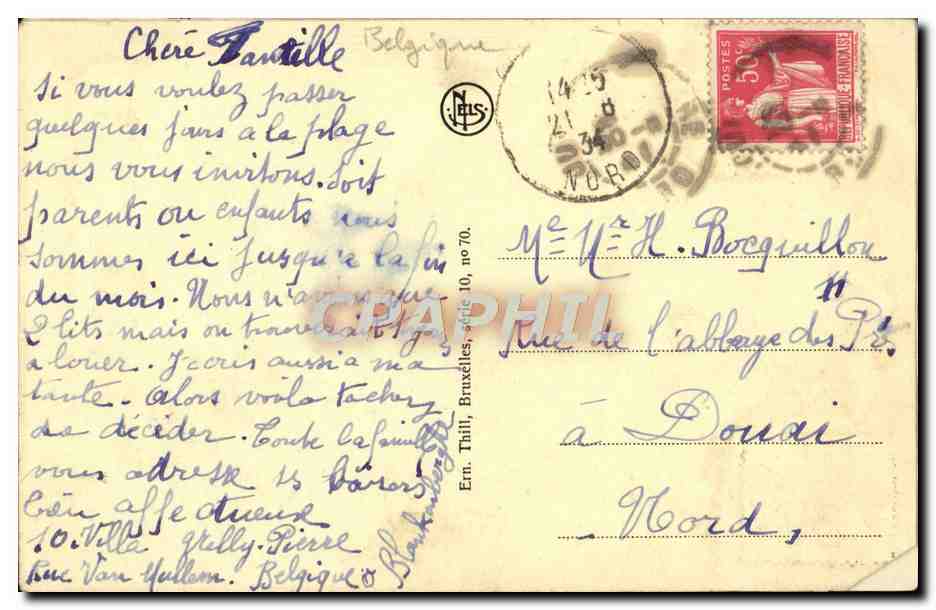 Chère Famille
Belgique
si vous voulez passer
quelques jours a la plage
nous vous invitons. soit
parents ou enfants nous
sommes ici jusqu'a la fin
du mois. Nous n'avons que
2 lits mais on trouverait
a louer. J'ecris aussi a ma
tante. Alors voila tachez
de décider. Toute la famille
vous adresse ses baisers
bien affectueux
10. Villa Nelly-Pierre
Rue Van Mullem. Belgique
Blankenberghe
NELS
Ern. Thill, Bruxelles, série 10, no 70.
14-15
21 8
34
NORD
POSTES
50c
REPUBLIQUE FRANÇAISE
Me Mr H. Bocquillon
11
Rue de l'abbaye des Prés
à Douai
Nord,
CPAPHIL